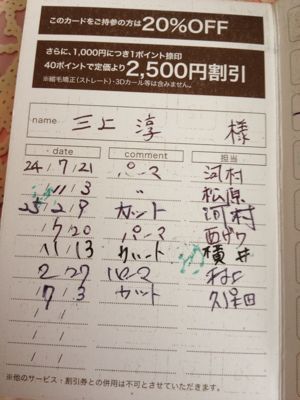 このカードをご持参の方は20%OFF
さらに、1,000円につき1ポイント捺印
40ポイントで定価より2,500円割引
※縮毛矯正(ストレート)・3Dカール等は含みません。
name 三上 淳 様
date comment 担当
24/7/21 パーマ 河村
11/3 〃 松原
25/2/9 カット 河村
/ 20 パーマ
11/13 カット 横井
2/27 パーマ
7/3 カット 久保田
/ /
/ /
/ /
※他のサービス・割引券との併用は不可とさせていただきます。